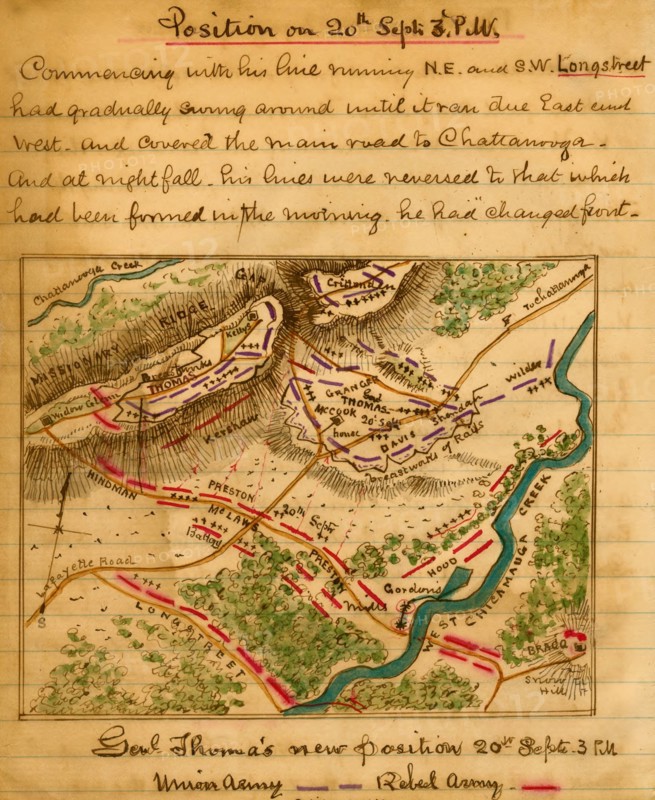 Position on 20th Sept: 3. P.M.
Commencing with his line running N.E. and S.W. Longstreet
had gradually swung around until it ran due East and
West. and covered the main road to Chattanooga.
And at nightfall. his lines were reversed to that which
had been formed in the morning. he had "changed front.
Chattanooga Creek
GAP
Crittend
To Chattanooga
MISSIONARY RIDGE
Kellys
THOMAS
Widow Glenn
Kershaw
GRANGER
and
THOMAS
McCOOK 20th Sept
house
DAVIS
Wilder
breastword of Rails
HINDMAN
PRESTON
McLAWS
20th Sept
PRESTON
HOOD
WEST CHICAMAUGA CREEK
Gordons
Mills
Lafayette Road
S
LONGSTREET
BRAGG
Snow
Hill
Genl Thomas's new position 20th Sept. 3 P.M
Union Army
Rebel Army.